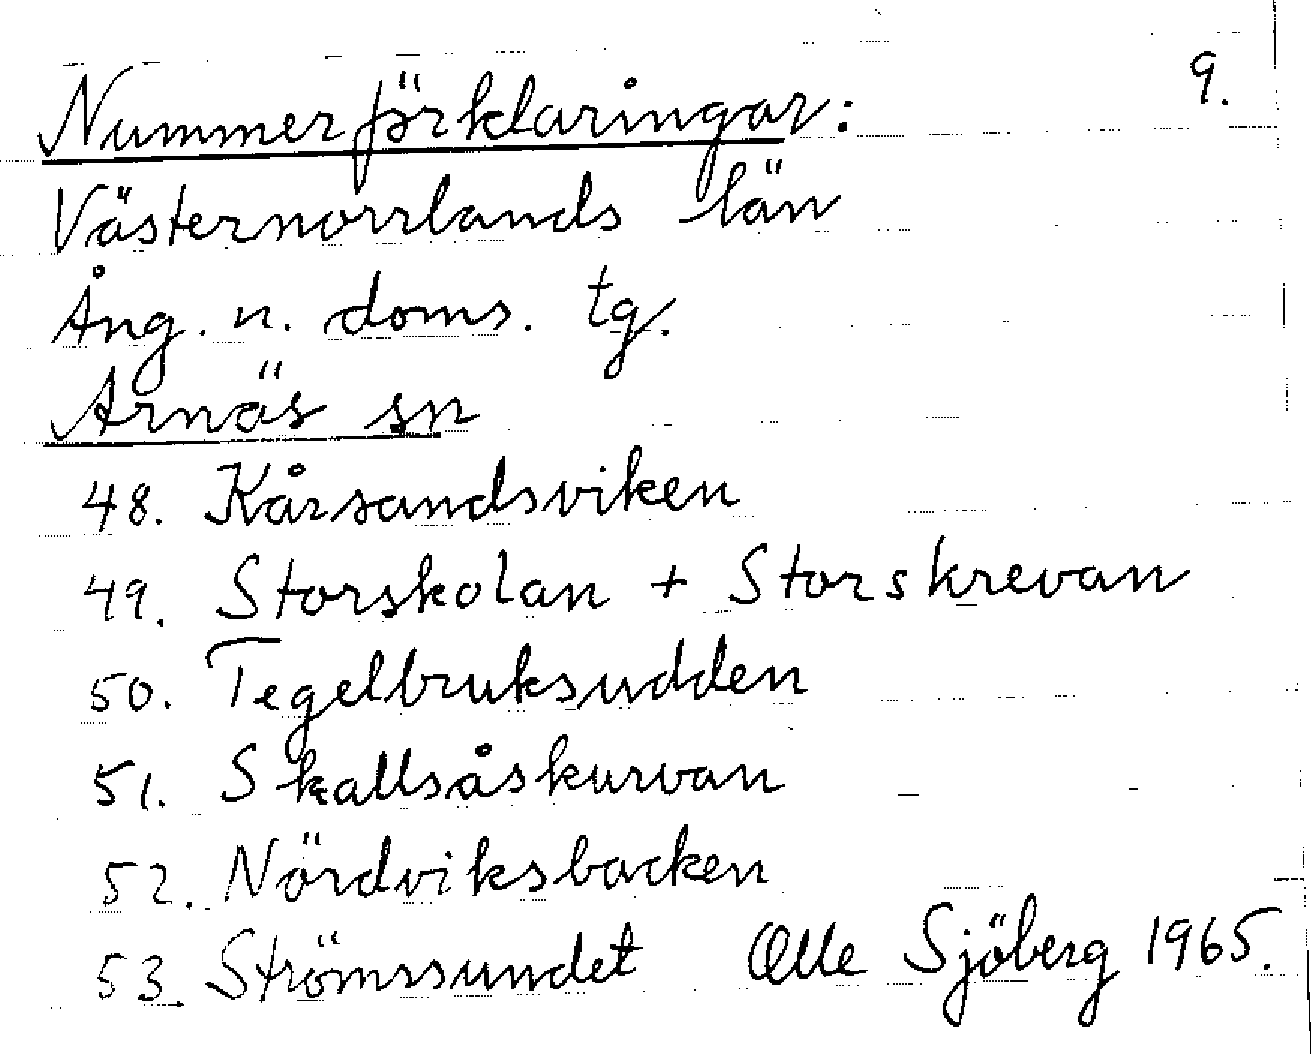 9.
Nummerförklaringar:
Västernorrlands län
Ång. n. doms. tg.
Arnäs sn
48. Kårsandsviken
49. Storskolan + Storskrevan
50. Tegelbruksudden
51. Skallsåskurvan
52. Nördviksbacken
53. Strömssundet Olle Sjöberg 1965.